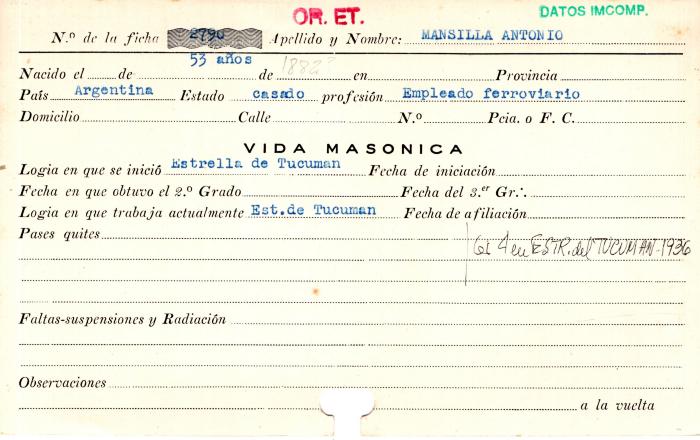 OR. ET.
DATOS IMCOMP.
N.º de la ficha 2790 Apellido y Nombre: MANSILLA ANTONIO
53 años
Nacido el de de 1882? en Provincia
País Argentina Estado casado profesión Empleado ferroviario
Domicilio Calle N.º Pcia. o F. C.
VIDA MASONICA
Logia en que se inició Estrella de Tucuman Fecha de iniciación
Fecha en que obtuvo el 2.º Grado Fecha del 3.er Gr∴
Logia en que trabaja actualmente Est.de Tucuman Fecha de afiliación
Pases quites
4 en ESTR. del TUCUMAN-1936
Faltas-suspensiones y Radiación
Observaciones
a la vuelta